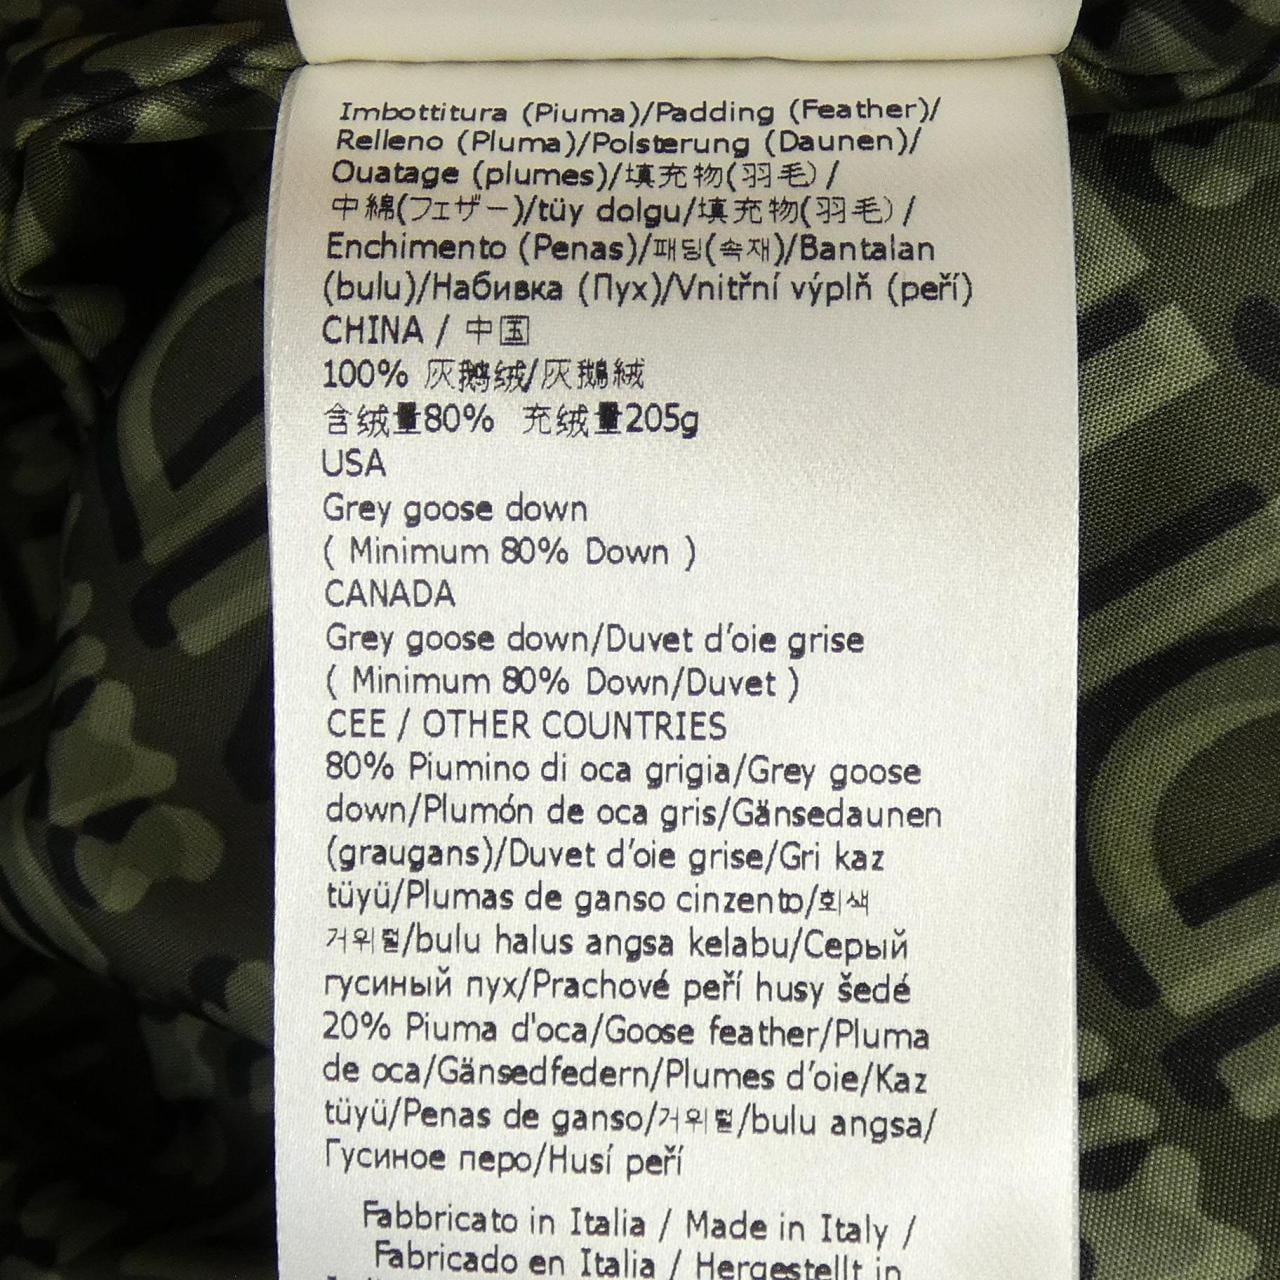 Imbottitura (Piuma)/Padding (Feather)/
Relleno (Pluma)/Polsterung (Daunen)/
Ouatage (plumes)/填充物(羽毛)/
中綿(フェザー)/tüy dolgu/填充物(羽毛)/
Enchimento (Penas)/패딩(속재)/Bantalan
(bulu)/Набивка (Пух)/Vnitřní výplň (peří)
CHINA / 中国
100% 灰鹅绒/灰鵝絨
含绒量80% 充绒量205g
USA
Grey goose down
( Minimum 80% Down )
CANADA
Grey goose down/Duvet d’oie grise
( Minimum 80% Down/Duvet )
CEE / OTHER COUNTRIES
80% Piumino di oca grigia/Grey goose
down/Plumón de oca gris/Gänsedaunen
(graugans)/Duvet d’oie grise/Gri kaz
tüyü/Plumas de ganso cinzento/회색
거위털/bulu halus angsa kelabu/Серый
гусиный пух/Prachové peří husy šedé
20% Piuma d'oca/Goose feather/Pluma
de oca/Gänsedfedern/Plumes d’oie/Kaz
tüyü/Penas de ganso/거위털/bulu angsa/
Гусиное перо/Husí peří
Fabbricato in Italia / Made in Italy /
Fabricado en Italia / Hergestellt in